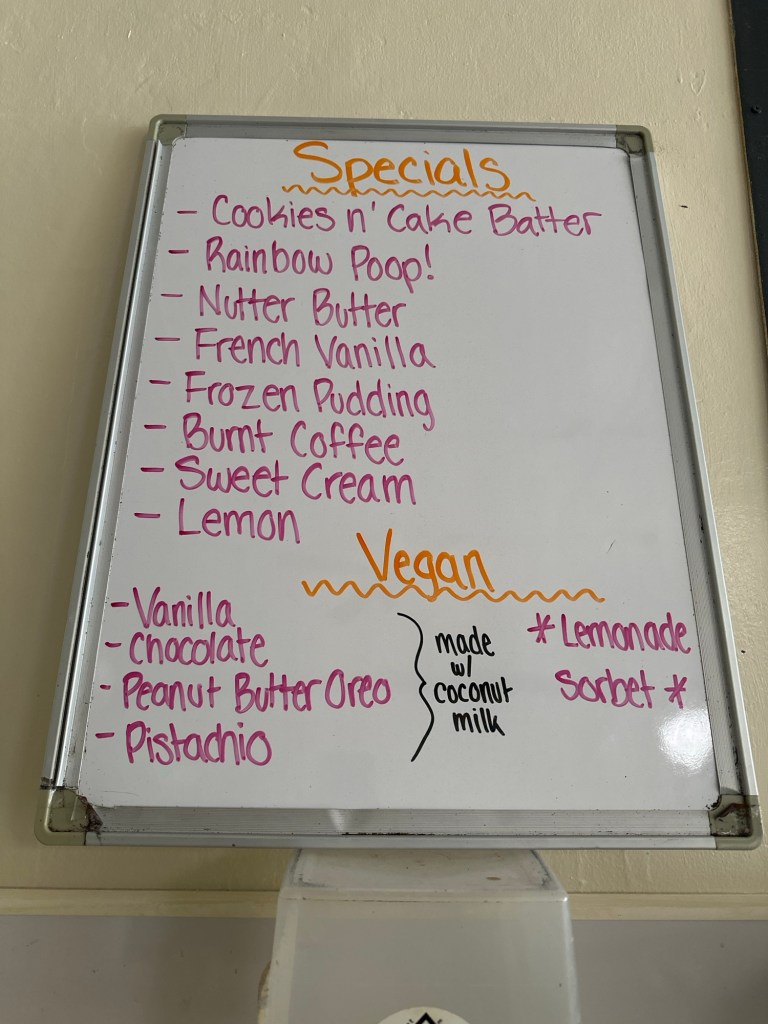 Specials
- Cookies n' Cake Batter
- Rainbow Poop!
- Nutter Butter
- French Vanilla
- Frozen Pudding
- Burnt Coffee
- Sweet Cream
- Lemon
Vegan
- Vanilla
- Chocolate
- Peanut Butter Oreo
- Pistachio
made
w/
coconut
milk
* Lemonade
Sorbet *